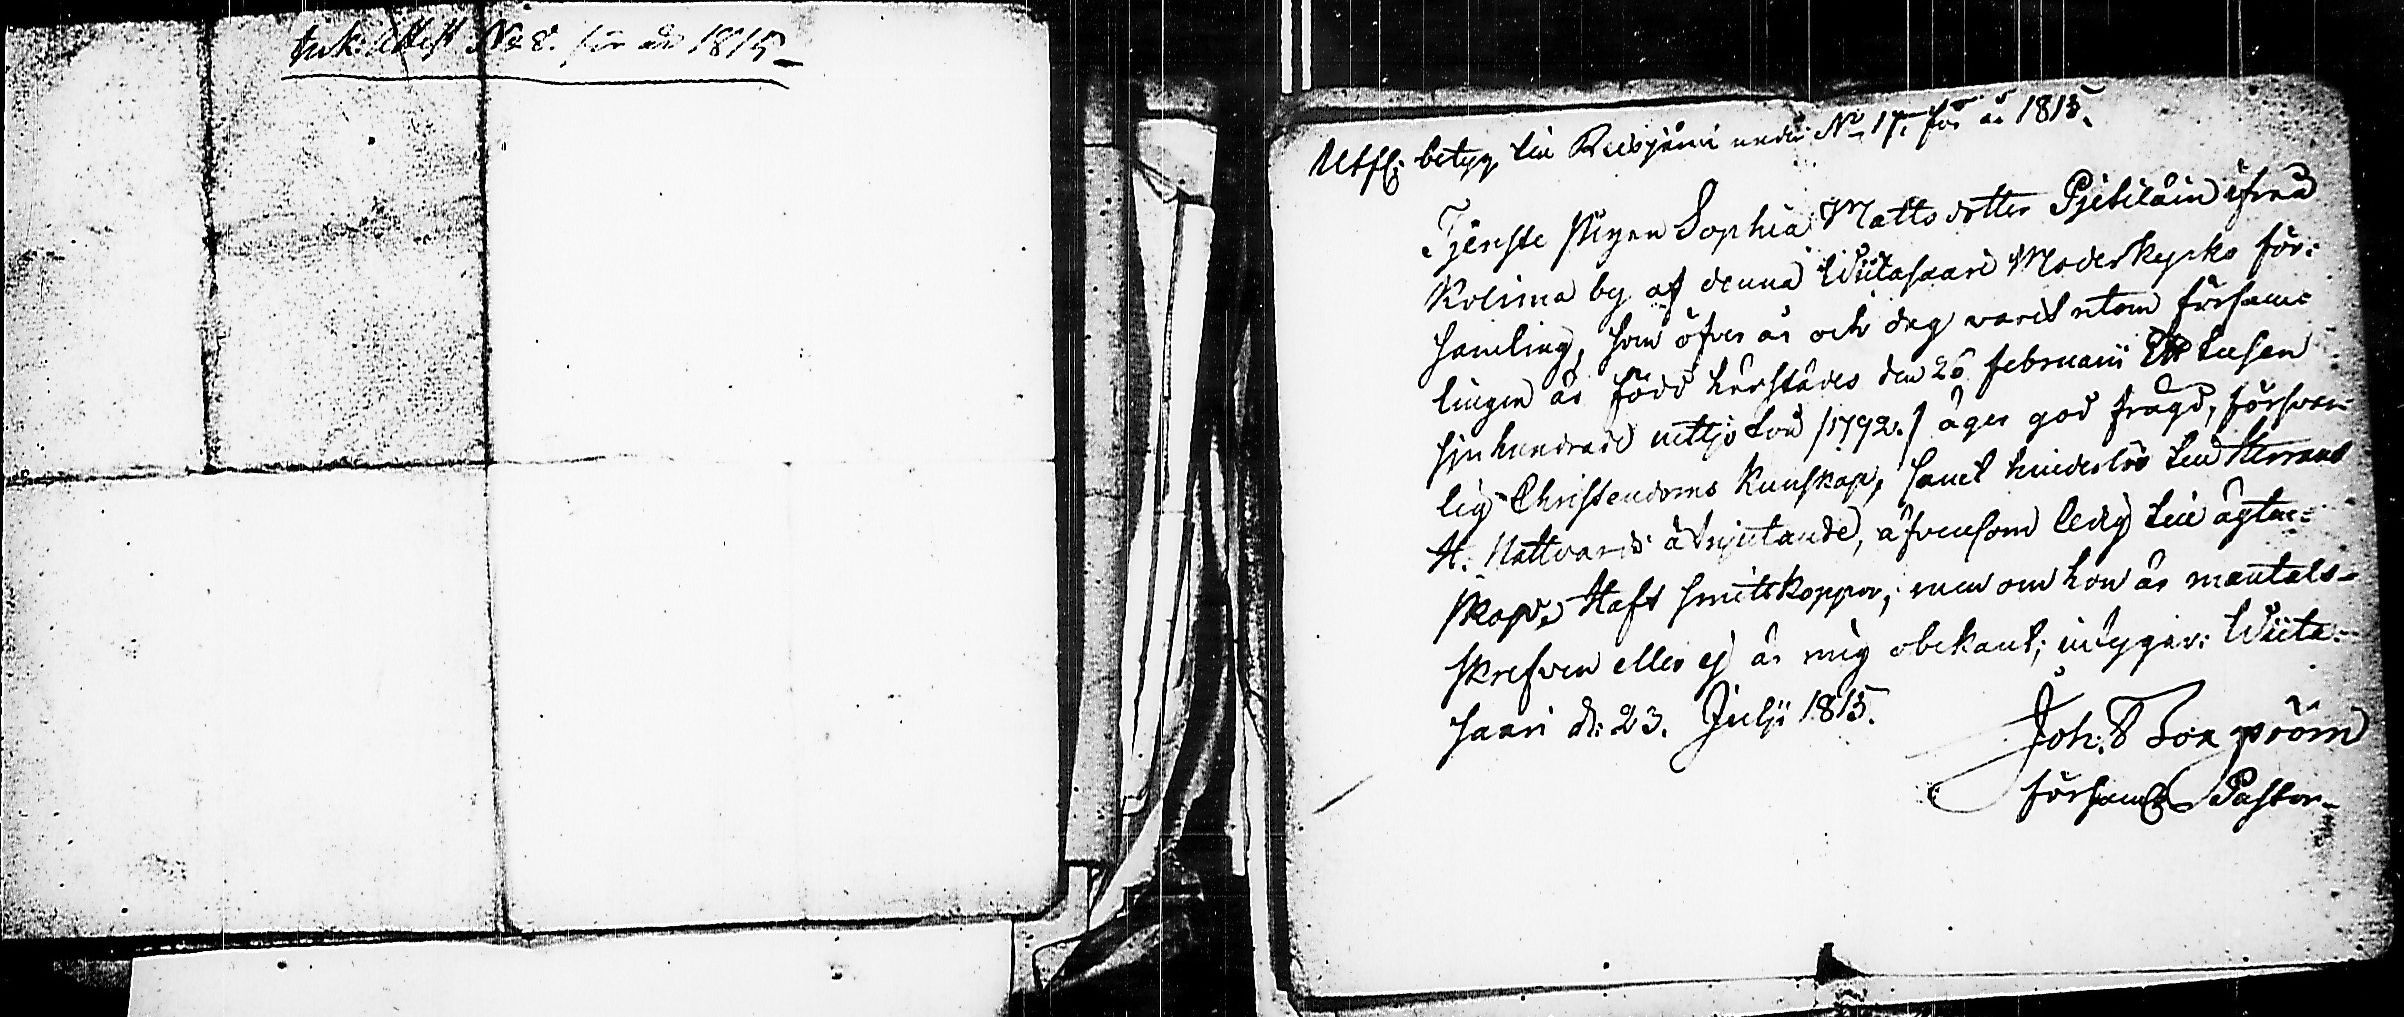 Ink. Attest No 8. för år 1815
Utfl: betyg till Reisjärvi under No 17. för år 1815.
Tjenste Pigan Sophia Mattsdotter Pjetiläin ifrån
Kolima by af denna Wiitasaari Moderkyrko för:
samling, som öfver år och dag varit utom församl
lingen är född härstädes den 26 Februarii Ett tusen
sju hundrade nittjo två /1792./ äger god frägd, försvar-
lig Christendoms kunskap, samt hinderlös till Herrans
H. Nattvards åtnjutande, äfvensom ledig till ägten-
skap, Haft smittkoppor, men om hon är mantals-
skrefven eller ej är mig obekant; intygar: Wiita-
saari d: 23. Julii 1815.
Joh.
församls Pastor